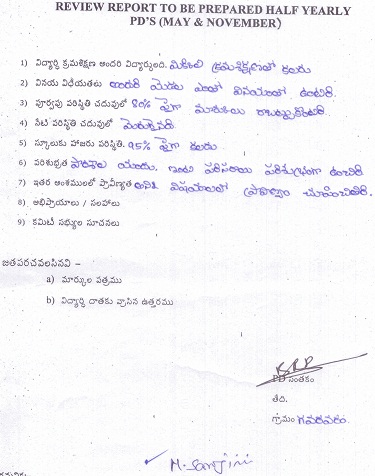 REVIEW REPORT TO BE PREPARED HALF YEARLY
PD'S (MAY & NOVEMBER)
1) విద్యార్థి క్రమశిక్షణ అందరి విద్యార్థులది. మికిలి క్రమశిక్షణలో కలరు
2) వినయ విధేయతలు అందరి మెడల ఎంతో వినయంతో ఉంటారి.
3) పూర్వపు పరిస్థితి చదువులో 80% పైగా మార్కులు
4) నేటి పరిస్థితి చదువులో మెరుగైనది.
5) స్కూలుకు హాజరు పరిస్థితి. 95% పైగా కలరు
6) పరిశుభ్రత పాఠశాల యందు, ఇంటి పరిసరాలు పరిశుభ్రంగా ఉంచిరి
7) ఇతర అంశములలో ప్రావీణ్యత అన్ని విషయాలలో
8) అభిప్రాయాలు / సలహాలు
9) కమిటీ సభ్యుల సూచనలు
జతపరచవలసినవి –
a) మార్కుల పత్రము
b) విద్యార్థి దాతకు వ్రాసిన ఉత్తరము
PD సంతకం
తేది.
గ్రామం గవరవరం.